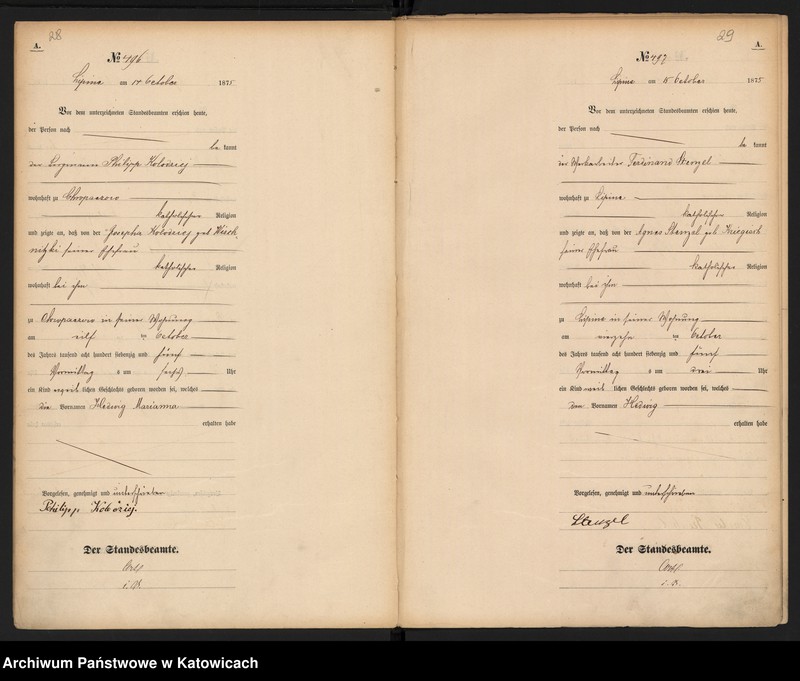 28
A.
№ 496
Lipine am 14 October 1875
Vor dem unterzeichneten Standesbeamten erschien heute,
der Person nach
be kannt
der Bergmann Philipp Kolodziej
wohnhaft zu Chropaczow
katholischer Religion
und zeigte an, daß von der Josepha Kolodziej geb
seiner Ehefrau
katholischer Religion
wohnhaft bei ihm
zu Chropaczow in seiner Wohnung
am eilf ten October
des Jahres tausend acht hundert siebenzig und fünf
Vormittag s um sechs Uhr
ein Kind weib lichen Geschlechts geboren worden sei, welches
die Vornamen Hedwig Marianna
erhalten habe
Vorgelesen, genehmigt und unterschrieben
Philipp Kolodziej.
Der Standesbeamte.
29
A.
№ 497
Lipine am 15 October 1875
Vor dem unterzeichneten Standesbeamten erschien heute,
der Person nach
be kannt
der Werkarbeiter Ferdinand Stenzel
wohnhaft zu Lipine
katholischer Religion
und zeigte an, daß von der Agnes Stenzel geb
seiner Ehefrau
katholischer Religion
wohnhaft bei ihm
zu Lipine in seiner Wohnung
am vierzehn ten October
des Jahres tausend acht hundert siebenzig und fünf
Vormittag s um Uhr
ein Kind weib lichen Geschlechts geboren worden sei, welches
den Vornamen Hedwig
erhalten habe
Vorgelesen, genehmigt und unterschrieben
Stenzel
Der Standesbeamte.
Archiwum Państwowe w Katowicach